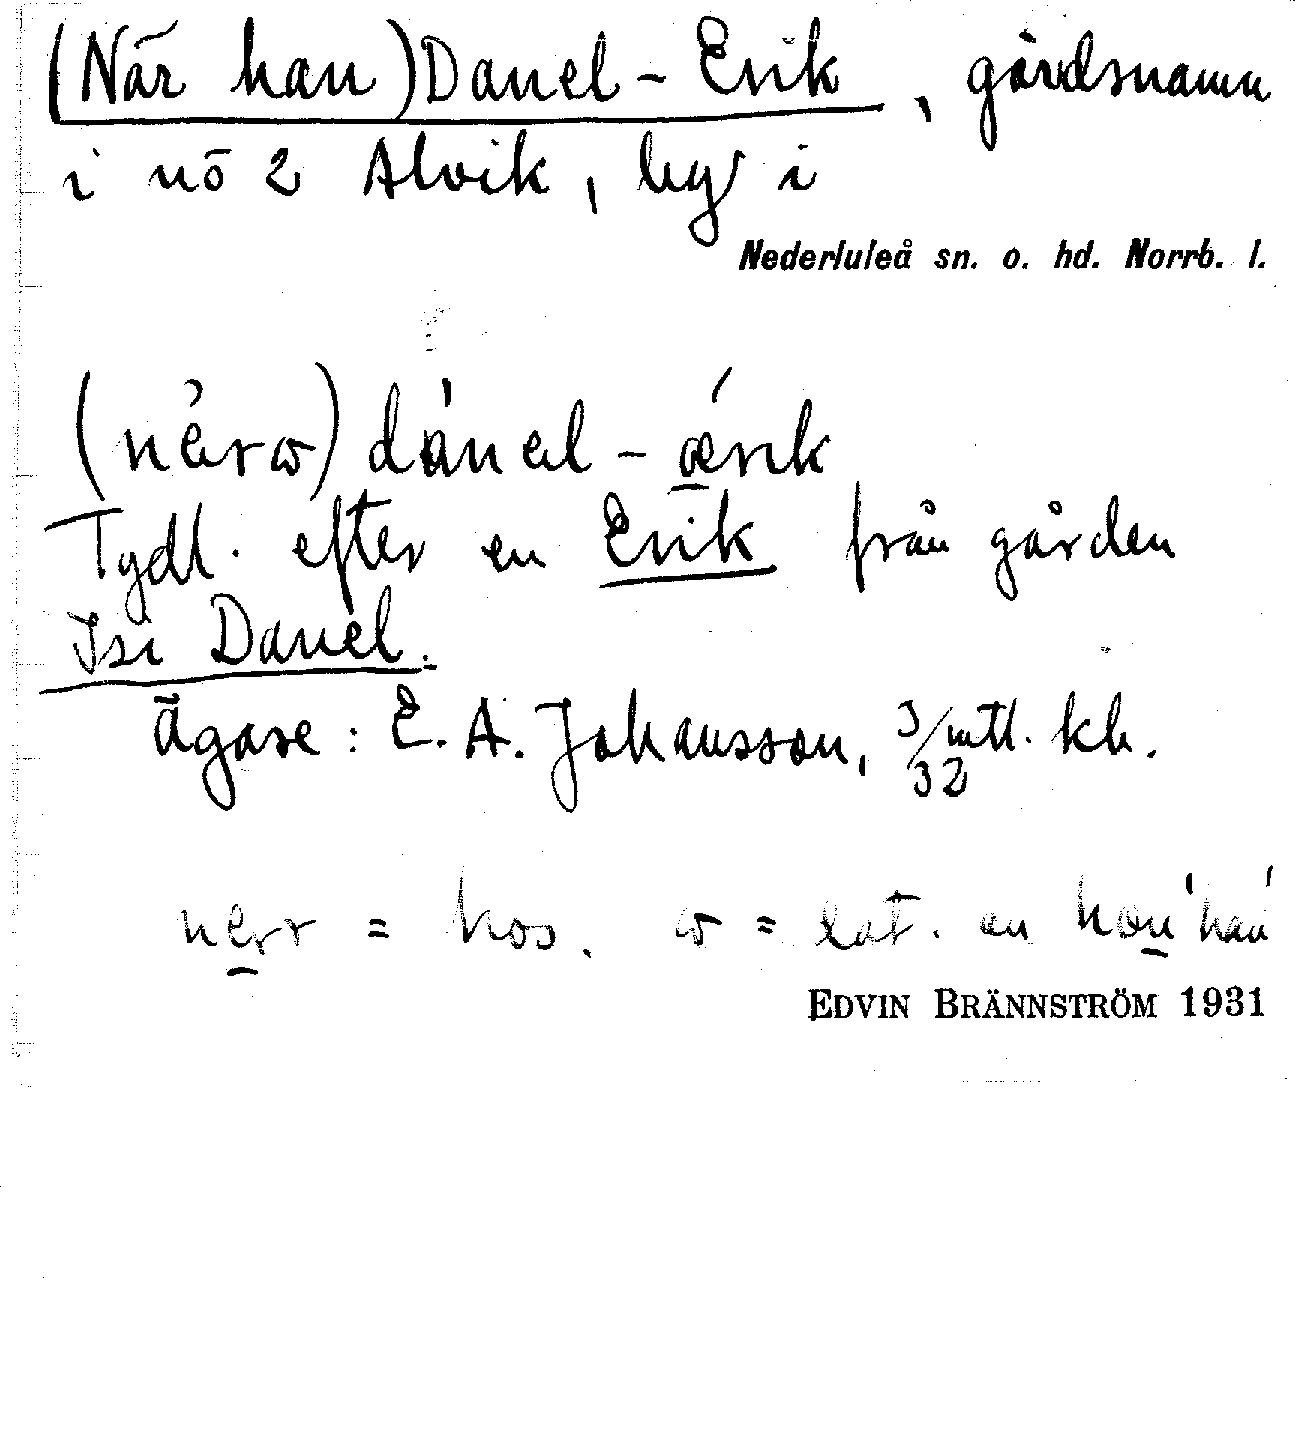 (När han) Danel-Erik, gårdsnamn
i nö 2 Alvik, by i
Nederluleå sn. o. hd. Norrb. l.
dánɐl-ǽrik
Tydl. efter en Erik från gården
Isi Danel.
Ägare: E. A. Johansson, 3/32 mtl. kh.
nɐrr = hos. ω = eat. an hon 'han'
EDVIN BRÄNNSTRÖM 1931